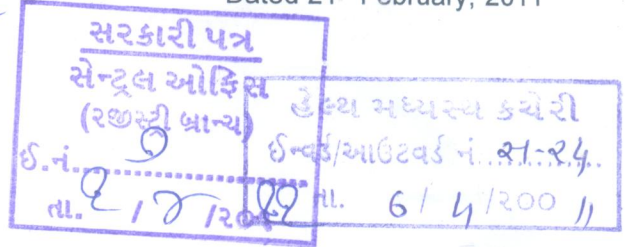 Dated 21 February, 2011
સરકારી પત્ર
સેન્ટ્રલ ઓફિસ
(રજીસ્ટ્રી બ્રાન્ચ)
ઈ.નં. ૭
તા.
હેલ્થ મધ્યસ્થ કચેરી
ઈન્વર્ડ/આઉટવર્ડ નં.
તા. 6/4/200 11